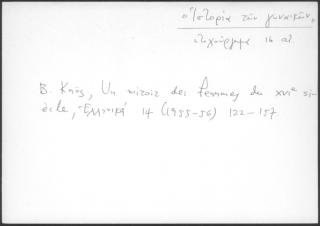 «Ἱστορία τῶν γυναικῶν»
στιχούργημα 16 αἰ
B. Knös, Un miroir des femmes du XVIe si-
ècle, Ἑλληνικά 14 (1955-56) 122-157